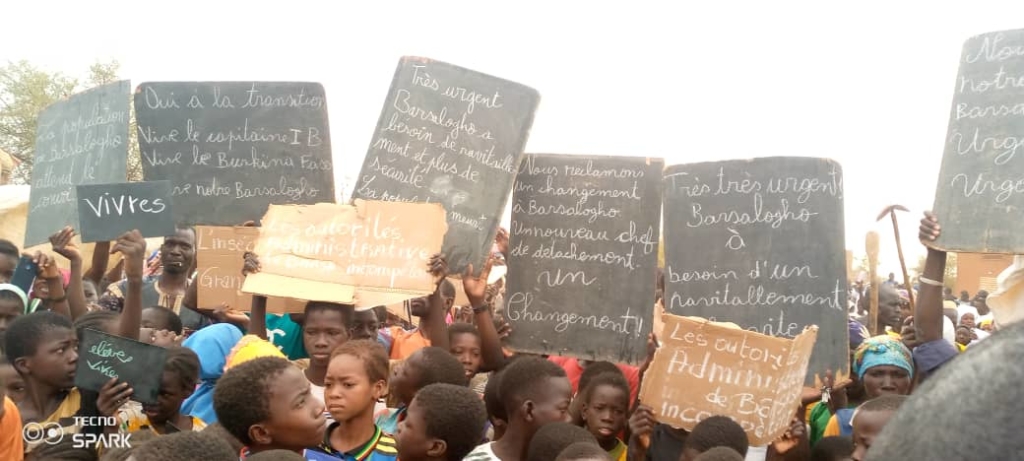 La population
Barsalogho
attend le
convoi
Vivres
Oui à la transition
Vive le capitaine IB
Vive le Burkina Faso
notre Barsalogho
Très urgent
Barsalogho a
besoin de ravitaille
ment et plus de
sécurité
La population meurt
L'insé
Les autorités
Administrative
incompé
Nous réclamons
un changement
à Barsalogho
un nouveau chef
de détachement.
un
Changement!
Très très urgent!
Barsalogho
à
besoin d'un
ravitallement
Les autorités
Admini
de
incom
Nou
notre
Barsa
Urge
Urge
élèves
vivres
TECNO
SPARK